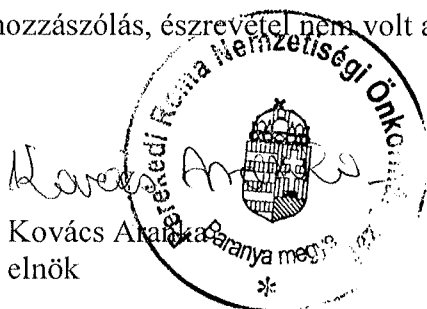 hozzászólás, észrevétel nem volt a
Roma Nemzetiségi
Baranya megye
Kovács Aranka
Kovács Aranka
elnök